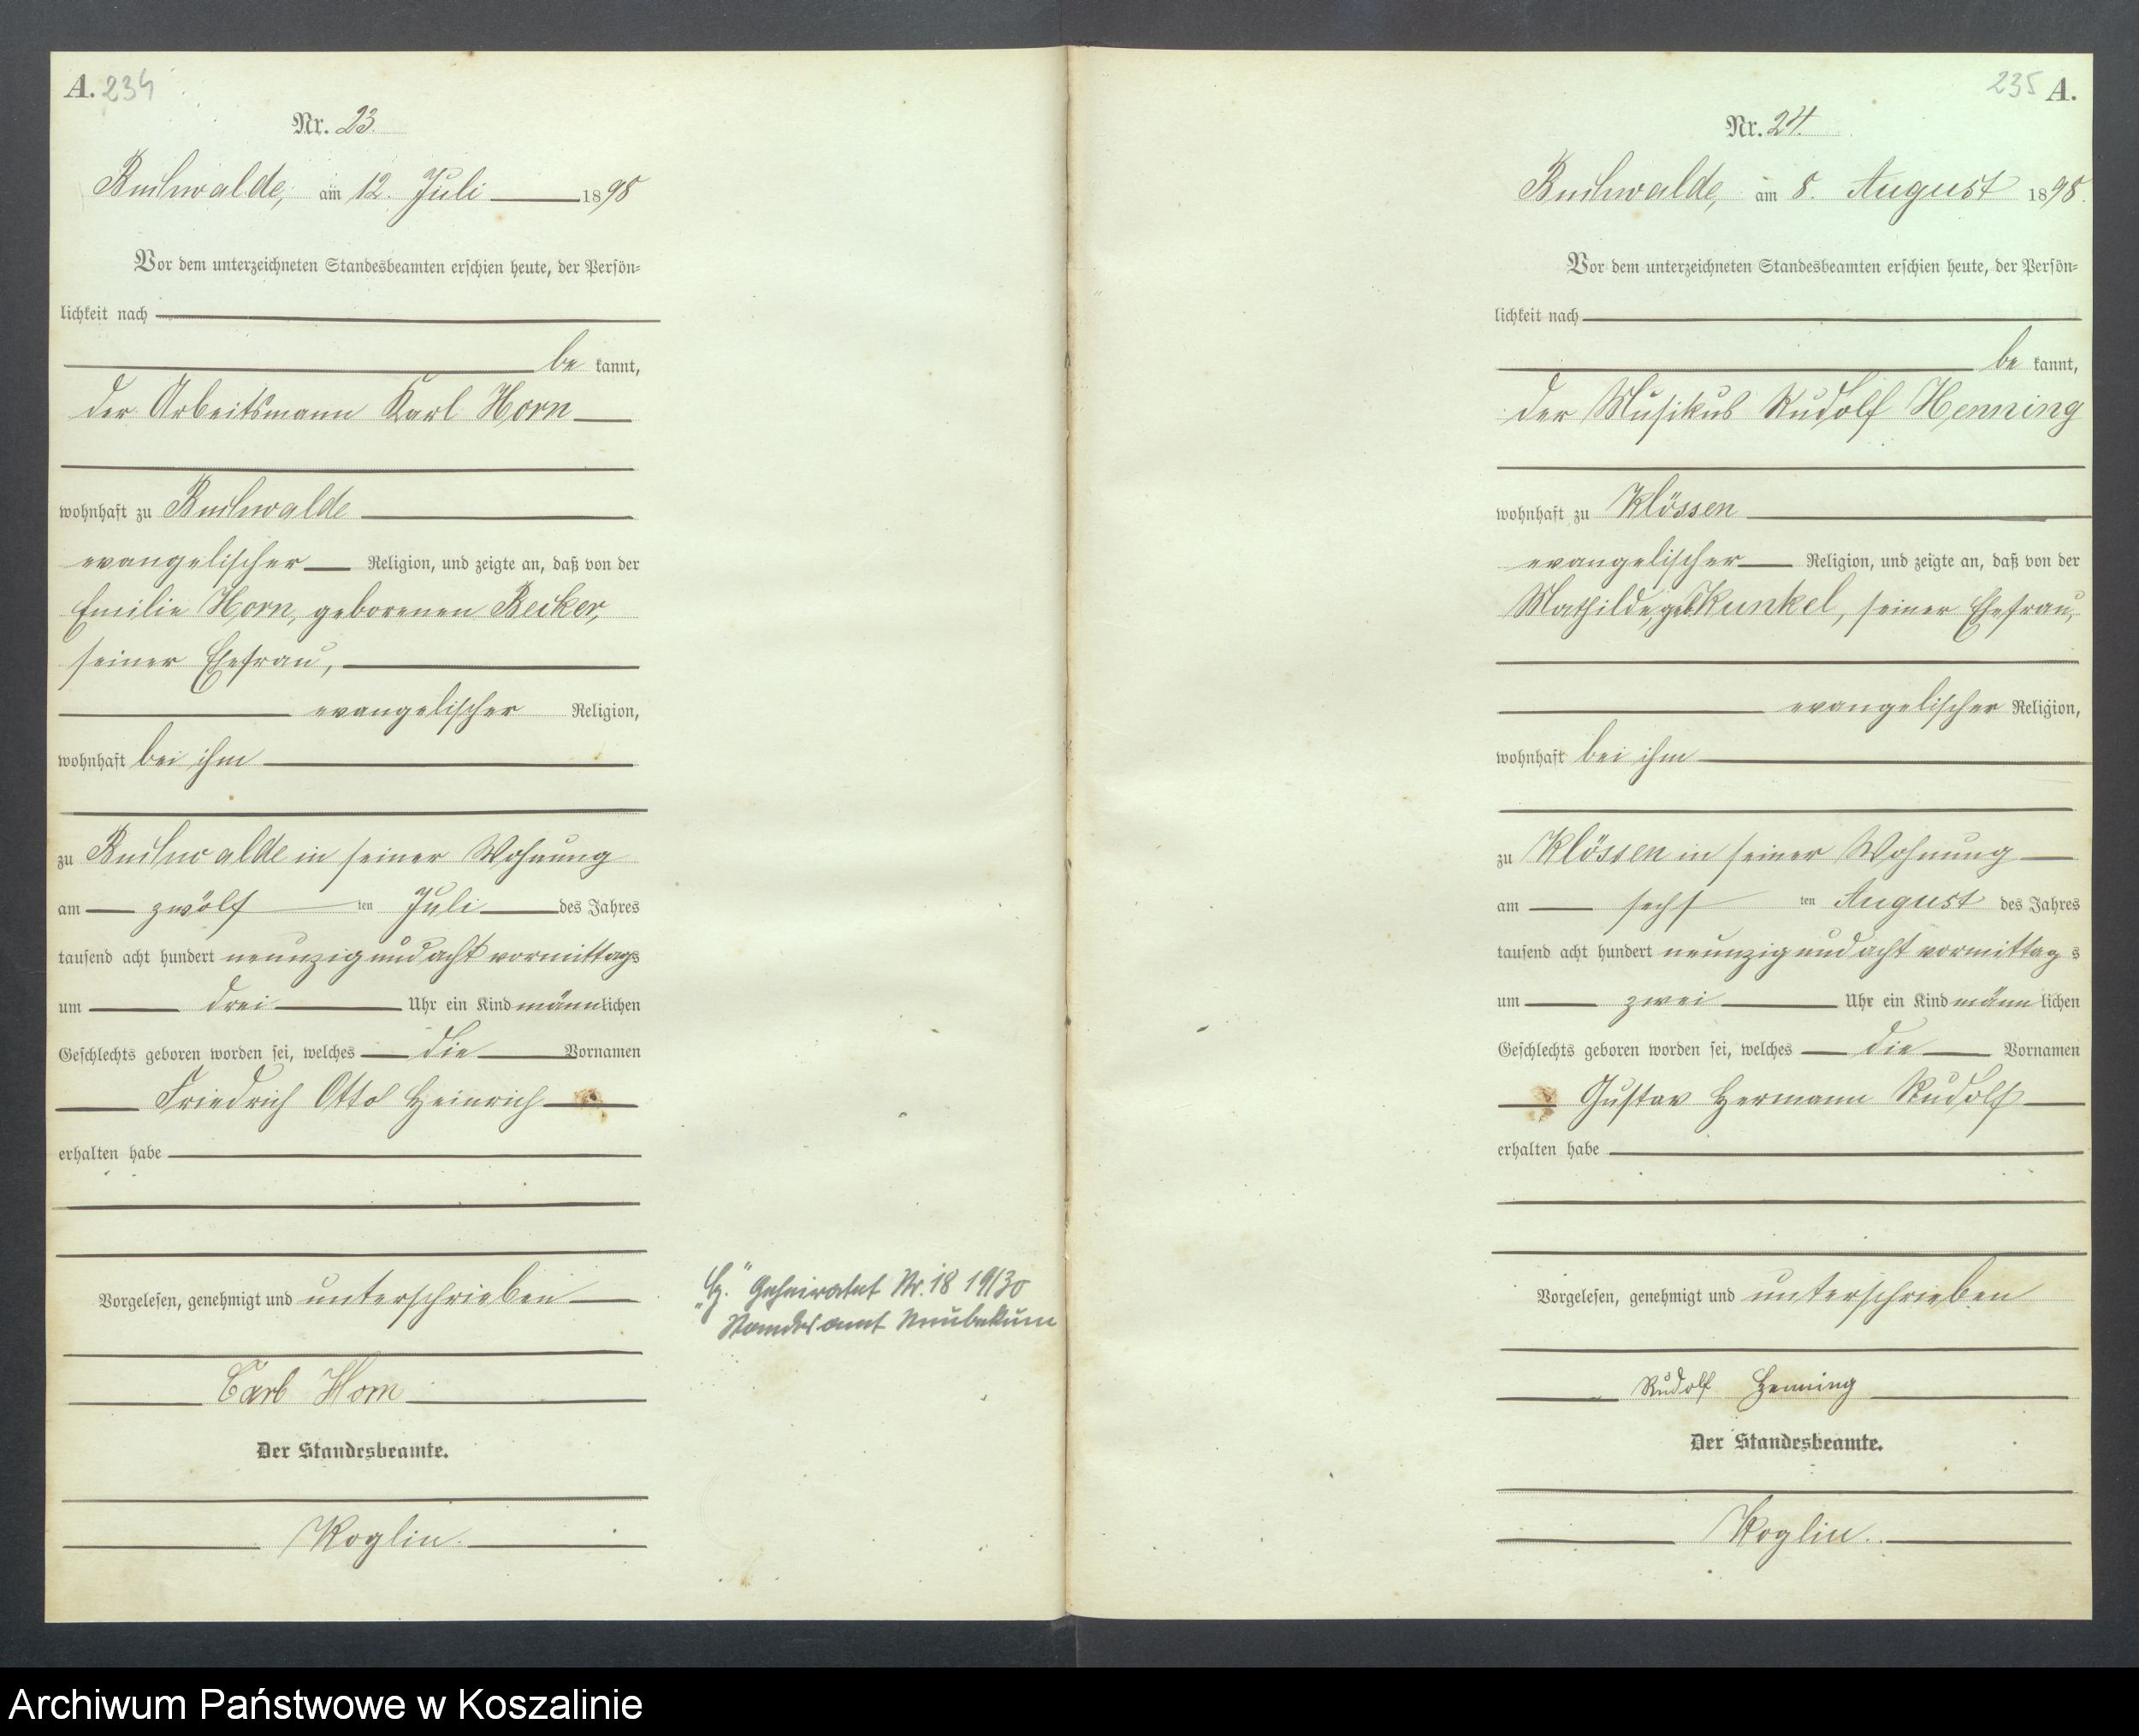 A. 234
Nr. 23.
Buchwalde, am 12. Juli 1898
Vor dem unterzeichneten Standesbeamten erschien heute, der Persön=
lichkeit nach
be kannt,
der Arbeitsmann Karl Horn
wohnhaft zu Buchwalde
evangelischer Religion, und zeigte an, daß von der
Emilie Horn, geborenen Becker,
seiner Ehefrau,
evangelischer Religion,
wohnhaft bei ihm
zu Buchwalde in seiner Wohnung
am zwölf ten Juli des Jahres
tausend acht hundert neunzig und acht vormittags
um drei Uhr ein Kind männlichen
Geschlechts geboren worden sei, welches die Vornamen
Friedrich Otto Heinrich
erhalten habe
Vorgelesen, genehmigt und unterschrieben
Carl Horn
Der Standesbeamte.
Koglin.
Geheiratet Nr. 18 19/30
Standesamt Neubeckum
235 A.
Nr. 24.
Buchwalde, am 8. August 1898.
Vor dem unterzeichneten Standesbeamten erschien heute, der Persön=
lichkeit nach
be kannt,
der Musikus Rudolf Henning
wohnhaft zu Klössen
evangelischer Religion, und zeigte an, daß von der
Mathilde, geb. Kunkel, seiner Ehefrau,
evangelischer Religion,
wohnhaft bei ihm
zu Klössen in seiner Wohnung
am sechs ten August des Jahres
tausend acht hundert neunzig und acht vormittag s
um zwei Uhr ein Kind männ lichen
Geschlechts geboren worden sei, welches die Vornamen
Gustav Hermann Rudolf
erhalten habe
Vorgelesen, genehmigt und unterschrieben
Rudolf Henning
Der Standesbeamte.
Koglin.
Archiwum Państwowe w Koszalinie